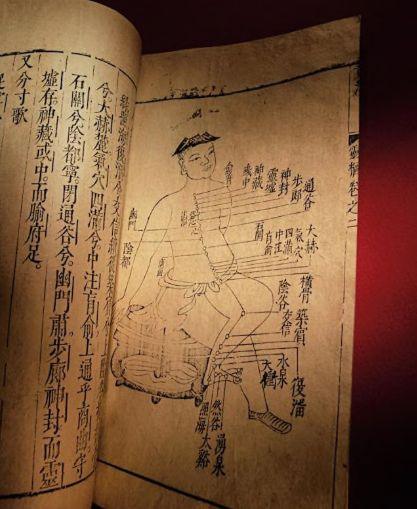 卷之二
通谷
步郎
神封
靈墟
神藏
彧中
俞府
大赫
氣穴
四滿
中注
肓俞
石關
橫骨
築賓
陰谷
交信
復溜
水泉
大鐘
湧泉
然谷
大谿
照海
幽門
陰都
兮大赫麓氣穴四滿兮中注肓俞上通乎商曲守
石關兮陰都寧閉通谷兮。幽門肅步廊神封而靈
墟存神藏彧中。而腧府足。
又分寸歌